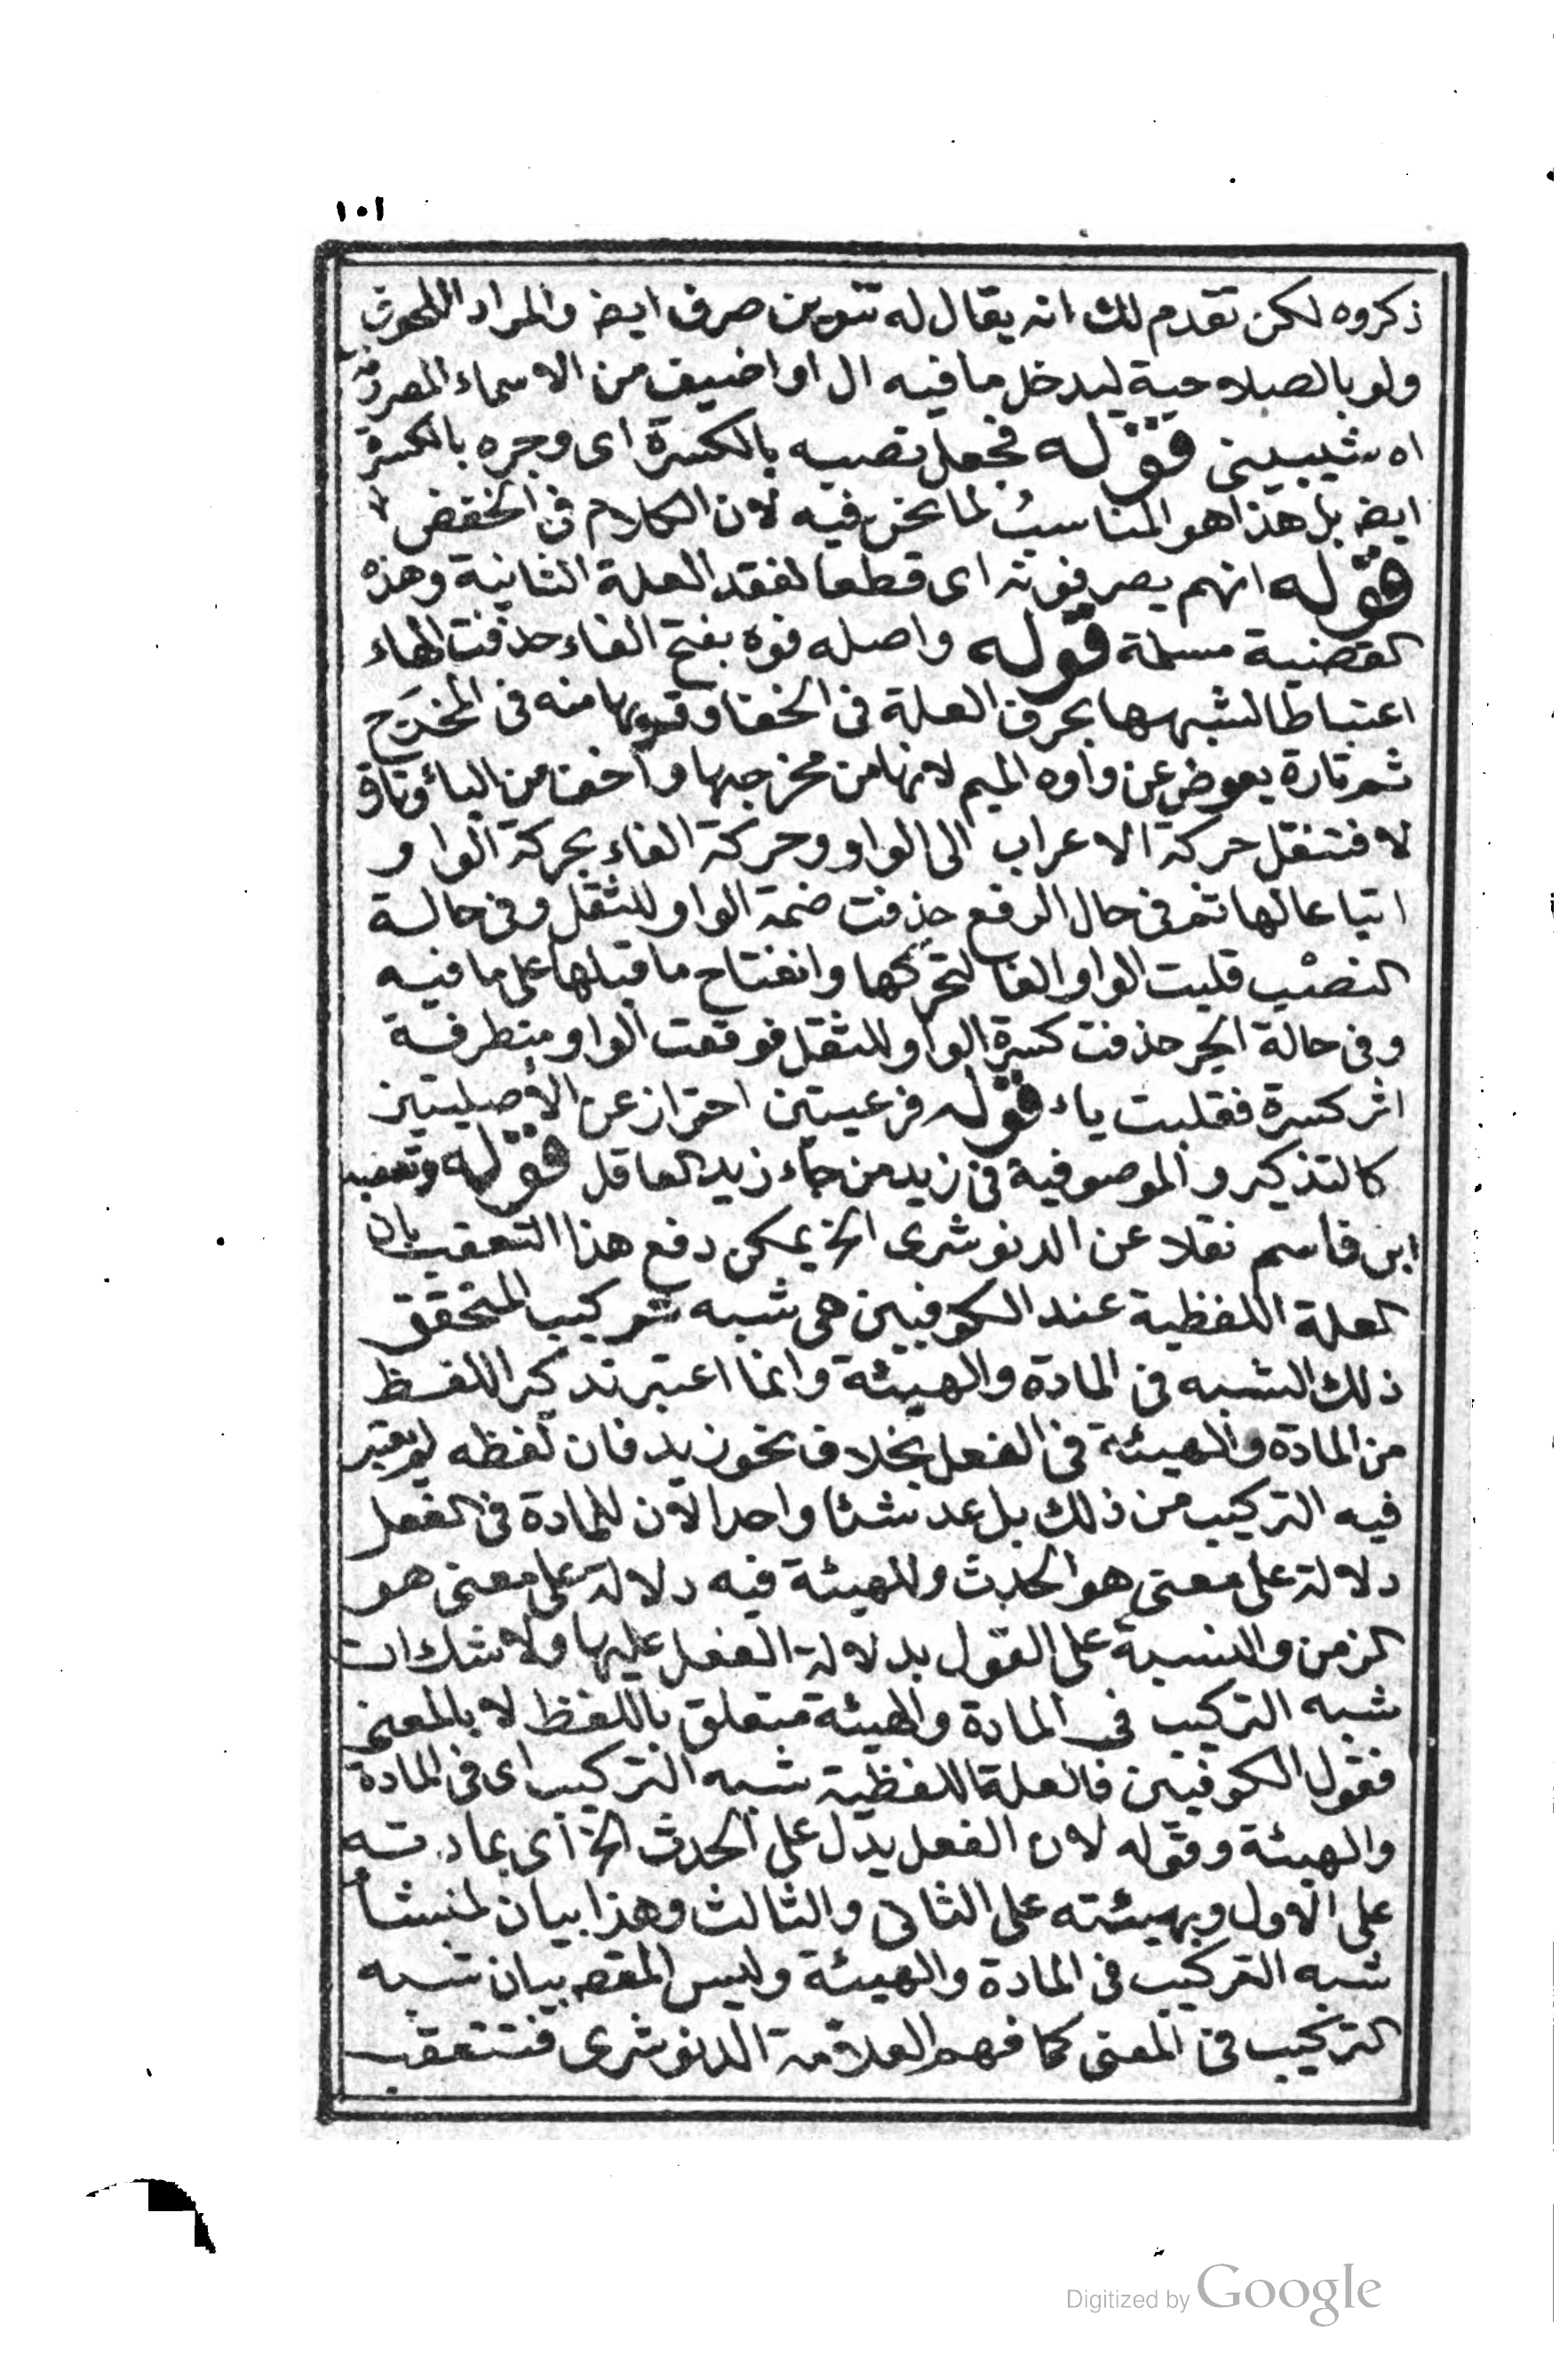 ١٠١
ذكروه لكن تقدم لك انه يقال له تنوين صرف ايضـ والمراد اللحوق
ولو بالصلاحية ليدخل ما فيه ال او اضيف من الاسماء المصروفة
اه شيبينى قوله فجعل نصبه بالكسرة اى وجره بالكسرة
ايضـ بل هذا هو المناسب لما نحن فيه لان الكلام فى الخفض
قوله انهم يصرفونه اى قطعا لفقد العلة الثانية وهذه
القضية مسلمة قوله واصله فوه بفتح الفاء حذفت الهاء
اعتباطا لشبهها بحرف العلة فى الخفا وقربها منه فى المخرج
ثم تارة يعوض عن واوه الميم لانها من مخرجها واخف من اليا وتارة
لا فتنقل حركة الاعراب الى الواو وحركة الفاء بحركة الواو
اتباعا لها ثم فى حال الرفع حذفت ضمة الواو للثقل وفى حالة
النصب قلبت الواو الفا لتحركها وانفتاح ما قبلها على ما فيه
وفى حالة الجر حذفت كسرة الواو للثقل فوقعت الواو متطرفة
اثر كسرة فقلبت ياء قوله فرعيتين احتراز عن الاصليتين
كالتذكير والموصوفية فى زيد من جاء زيد العاقل قوله وتعقبه
ابن قاسم نقلا عن الدنوشرى الخ يمكن دفع هذا التعقب بان
العلة اللفظية عند الكوفيين هى شبه تركيب المتحقق
ذلك الشبه فى المادة والهيئة وانما اعتبر تركيب اللفظ
من المادة والهيئة فى الفعل بخلاف نحو زيد فان لفظه لم يعتبر
فيه التركيب من ذلك بل عد شئا واحدا لان للمادة فى الفعل
دلالة على معنى هو الحدث وللهيئة فيه دلالة على معنى هو
الزمن والنسبة على القول بدلالة الفعل عليها ولا شك ان
شبه التركيب فى المادة والهيئة متعلق باللفظ لا بالمعنى
فقول الكوفيين فالعلة اللفظية شبه التركيب اى فى المادة
والهيئة وقوله لان الفعل يدل على الحدث الخ اى بمادته
على الاول وبهيئته على الثانى والثالث وهذا بيان لمنشأ
شبه التركيب فى المادة والهيئة وليس المقصـ بيان شبه
التركيب فى المعنى كما فهم العلامة الدنوشرى فتتعقب
Digitized by Google